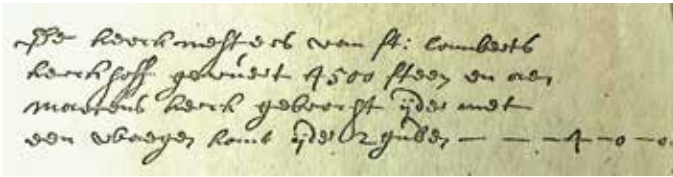 kerckmesters van St: Lamberts
kerckhoff gevüert 4500 steen en aen
martens kerck gebrocht ijder met
een waegen komt ijder 2 gulden — — — 4 — 0 — 0